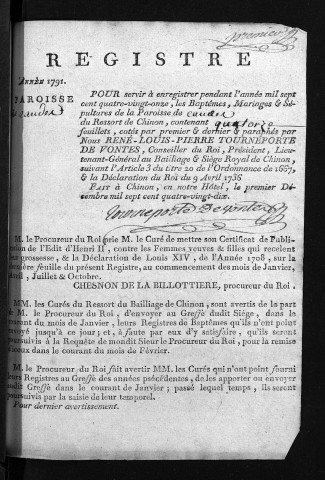 premier
REGISTRE
ANNÉE 1791.
PAROISSE
de candes
POUR servir à enregistrer pendant l'année mil sept
cent quatre-vingt-onze, les Baptêmes, Mariages & Sé-
pultures de la Paroisse de candes
du Ressort de Chinon, contenant quatorze
feuillets, cotés par premier & dernier & paraphés par
Nous RENÉ-LOUIS-PIERRE TOURNEPORTE
DE VONTES, Conseiller du Roi, Président, Lieu-
tenant-Général au Bailliage & Siége Royal de Chinon,
suivant l'Article 3 du titre 20 de l'Ordonnance de 1667,
& la Déclaration du Roi du 9 Avril 1736
FAIT à Chinon, en notre Hôtel, le premier Dé-
cembre mil sept cent quatre-vingt-dix.
Tourneporte De Vontes
M. le Procureur du Roi prie M. le Curé de mettre son Certificat de Publi-
cation de l'Edit d'Henri II, contre les Femmes veuves & filles qui recelent
leur grossesse, & la Déclaration de Louis XIV, de l'Année 1708, sur la
première feuille du présent Registre, au commencement des mois de Janvier,
Avril, Juillet & Octobre.
CHESNON DE LA BILLOTTIERE, procureur du Roi.
MM. les Curés du Ressort du Bailliage de Chinon, sont avertis de la part
de M. le Procureur du Roi, d'envoyer au Greffe dudit Siége, dans le
courant du mois de Janvier, leurs Registres de Baptêmes qu'ils n'ont point
envoyé jusqu'à ce jour; et, à faute par eux d'y satisfaire, qu'ils seront
poursuivis à la Requête de mondit Sieur le Procureur du Roi, pour la remise
d'iceux dans le courant du mois de Février.
M. le Procureur du Roi fait avertir MM. les Curés qui n'ont point fourni
leurs Registres au Greffe des années précédentes, de les apporter ou envoyer
audit Greffe dans le courant de Janvier; passé lequel temps, ils seront
poursuivis par la saisie de leur temporel.
Pour dernier avertissement.